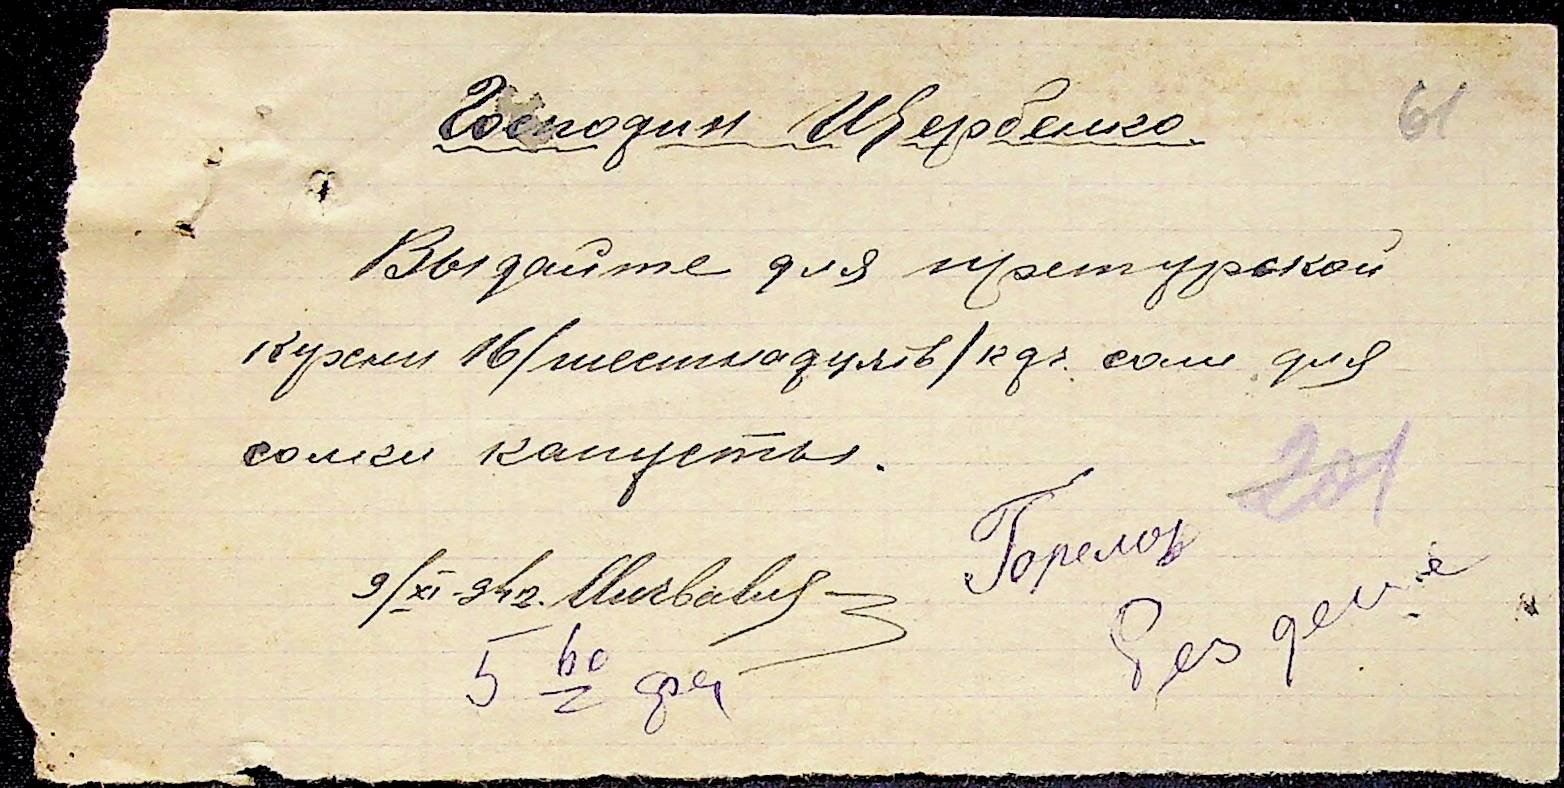 Господин Щербенко
61
Выдайте для претурской
кухни 16/шестнадцать/кгр. соли для
солки капусты.
201
Горелов
9/XI-942.
Без дене
5 60